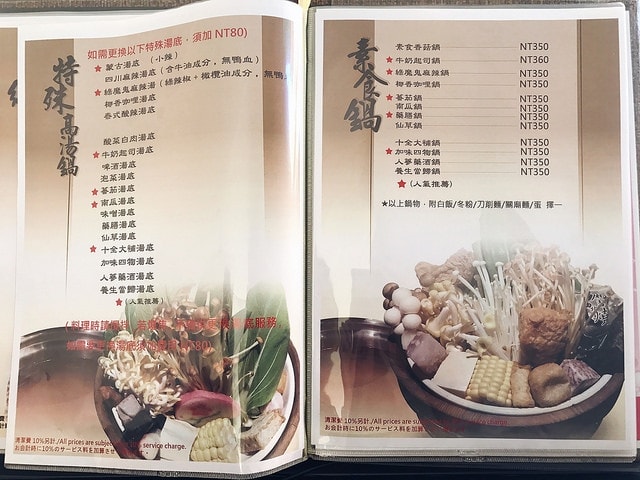 特殊高湯鍋
如需更換以下特殊湯底，須加 NT80)
★ 蒙古湯底 （小辣）
四川麻辣湯底（含牛油成分，無鴨血）
★ 綠魔鬼麻辣湯（綠辣椒+橄欖油成分，無鴨血
椰香咖哩湯底
泰式酸辣湯底
酸菜白肉湯底
★ 牛奶起司湯底
啤酒湯底
泡菜湯底
★ 蕃茄湯底
★ 南瓜湯底
味噌湯底
藥膳湯底
仙草湯底
★ 十全大補湯底
加味四物湯底
人蔘藥酒湯底
養生當歸湯底
★（人氣推薦）
清潔費 10%另計./All prices are subje service charge.
お会計時に10%のサービス料を加算させ
素食鍋
素食香菇鍋 NT350
★ 牛奶起司鍋 NT360
★ 綠魔鬼麻辣鍋 NT350
椰香咖哩鍋 NT350
★ 蕃茄鍋 NT350
南瓜鍋 NT350
★ 藥膳鍋 NT350
仙草鍋 NT350
十全大補鍋 NT350
★ 加味四物鍋 NT350
人蔘藥酒鍋 NT350
養生當歸鍋 NT350
★（人氣推薦）
★以上鍋物，附白飯/冬粉/刀削麵/關廟麵/蛋 擇一
清潔費 10%另計./All prices are subject to 10%
お会計時に10%のサービス料を加算